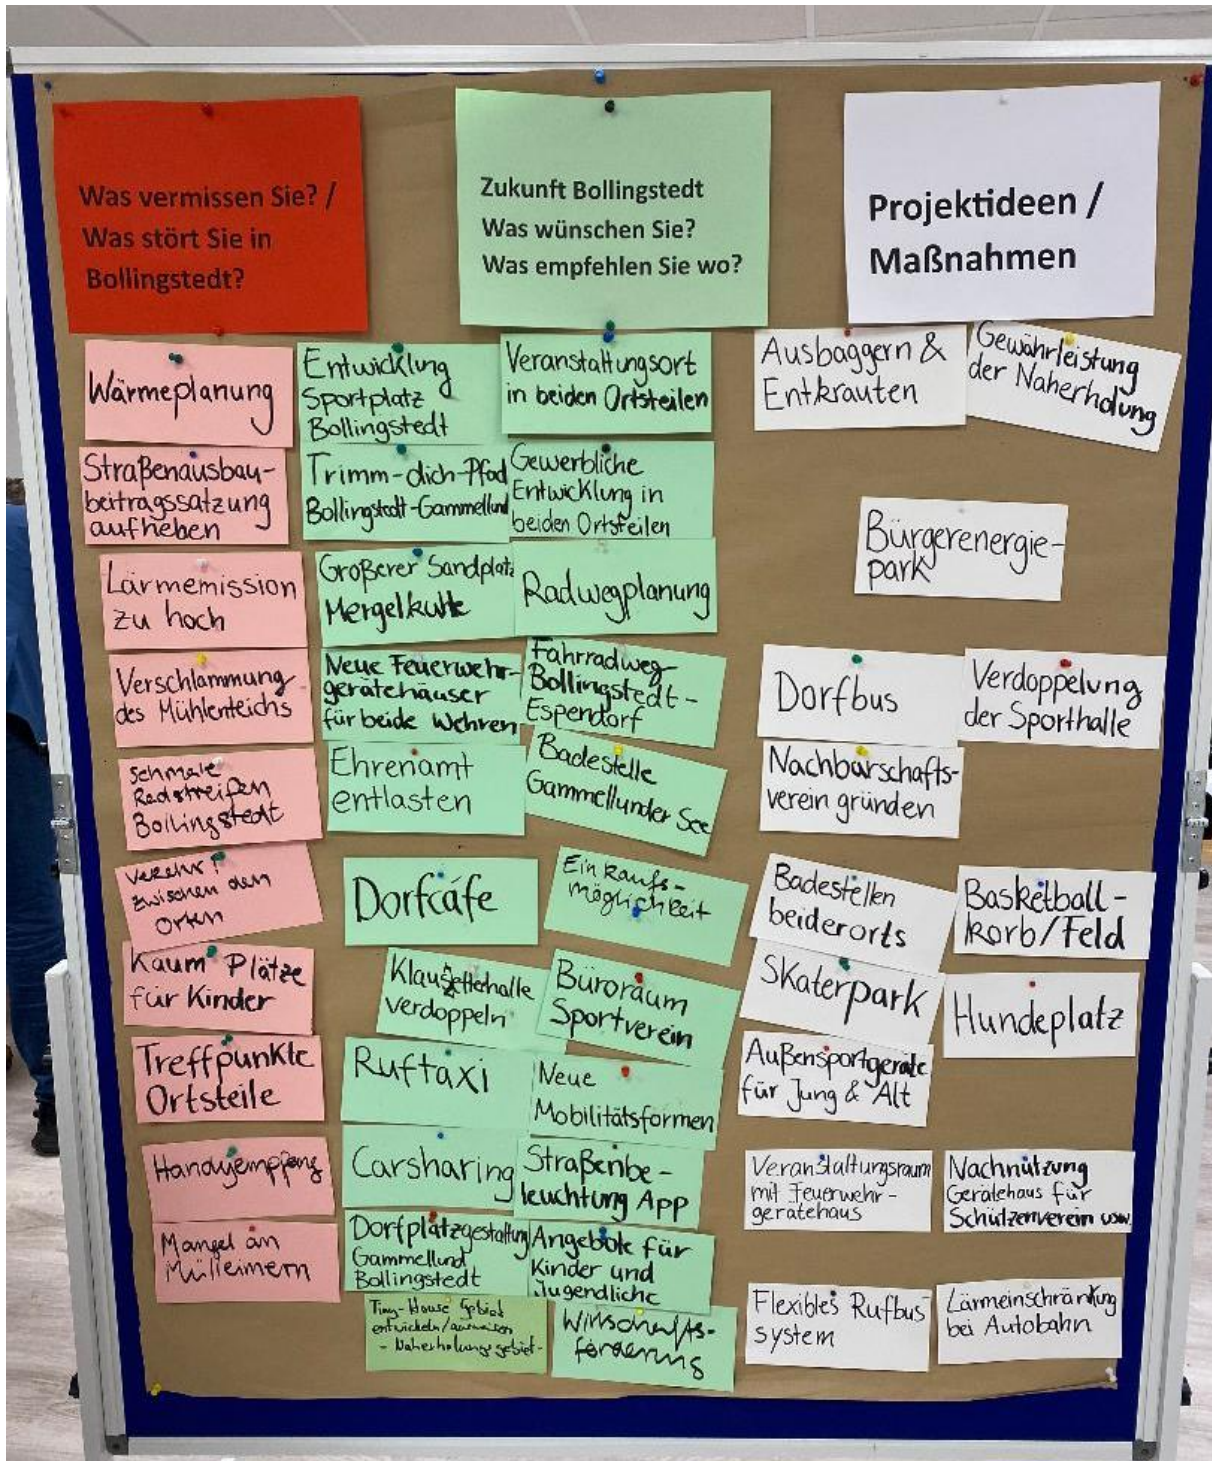 Was vermissen Sie? /
Was stört Sie in
Bollingstedt?
Wärmeplanung
Straßenausbau-
beitragssatzung
aufheben
Lärmemission
zu hoch
Verschlammung
des Mühlenteichs
schmale
Radstreifen
Bollingstedt
zwischen den
Orten
Kaum Plätze
für Kinder
Treffpunkte
Ortsteile
Handyempfang
Mangel an
Mülleimern
Zukunft Bollingstedt
Was wünschen Sie?
Was empfehlen Sie wo?
Entwicklung
Sportplatz
Bollingstedt
Trimm-dich-Pfad
Bollingstedt-Gammellund
Größerer Sandplatz
Mergelkuhle
Neue Feuerwehr-
gerätehäuser
für beide Wehren
Ehrenamt
entlasten
Dorfcáfe
verdoppeln
Ruftaxi
Carsharing
Dorfplatzgestaltung
Gammellund
Bollingstedt
Tiny-House Gebiet
entwickeln/ausweisen
- Naherholungsgebiet-
Veranstaltungsort
in beiden Ortsteilen
Gewerbliche
Entwicklung in
beiden Ortsteilen
Radwegplanung
Fahrradweg
Bollingstedt-
Espendorf
Badestelle
Gammellunder See
Einkaufs-
möglichkeit
Büroraum
Sportverein
Neue
Mobilitätsformen
Straßenbe-
leuchtung App
Angebote für
Kinder und
Jugendliche
Wirtschafts-
förderung
Projektideen /
Maßnahmen
Ausbaggern &
Entkrauten
Gewährleistung
der Naherholung
Bürgerenergie-
park
Dorfbus
Verdoppelung
der Sporthalle
Nachbarschafts-
verein gründen
Badestellen
beiderorts
Basketball-
korb/Feld
Skaterpark
Hundeplatz
Außensportgeräte
für Jung & Alt
Veranstaltungsraum
mit Feuerwehr-
gerätehaus
Nachnutzung
Gerätehaus für
Schützenverein usw.
Flexibles Rufbus
system
Lärmeinschränkung
bei Autobahn